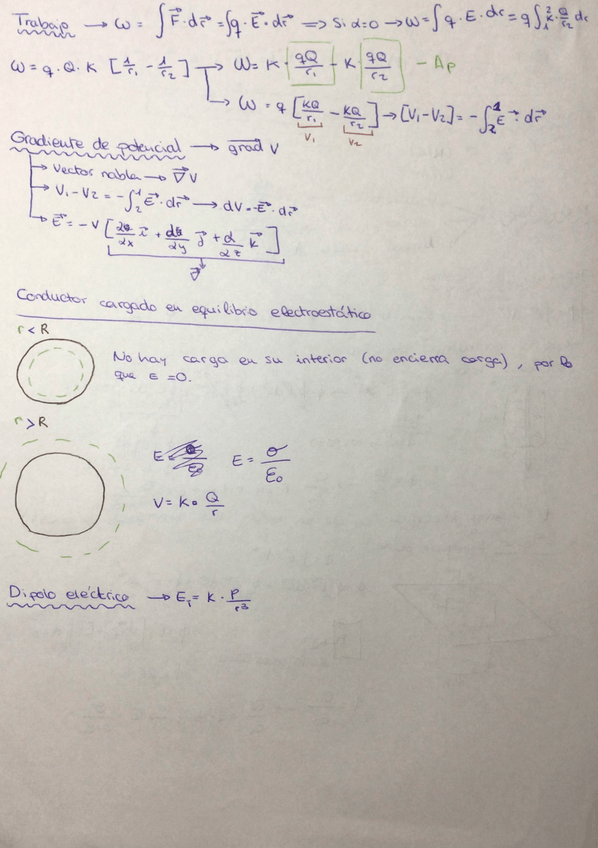 Trabajo → ω = ∫ F⃗ · dr⃗ = ∫ q · E⃗ · dr⃗ ⇒ Si α=0 → ω = ∫ q · E · dr = q ∫₁² K · Q/r² dr
ω = q · Q · K [1/r₁ - 1/r₂] → ω = K · qQ/r₁ - K · qQ/r₂ - Δp
→ ω = q [KQ/r₁ - KQ/r₂] → [V₁ - V₂] = - ∫₂¹ E⃗ · dr⃗
V₁ V₂
Gradiente de potencial → grad V
Vector nabla → ∇⃗ V
V₁ - V₂ = - ∫₂¹ E⃗ · dr⃗ → dV = - E⃗ · dr⃗
E⃗ = - V [ /dx i⃗ + /dy j⃗ + d/dz k⃗ ]
∇⃗
Conductor cargado en equilibrio electroestático
r < R
No hay carga en su interior (no encierra carga), por lo
que E = 0.
r > R
E = σ/ε₀
V = K · Q/r
Dipolo eléctrico → E_T = K · P/r³